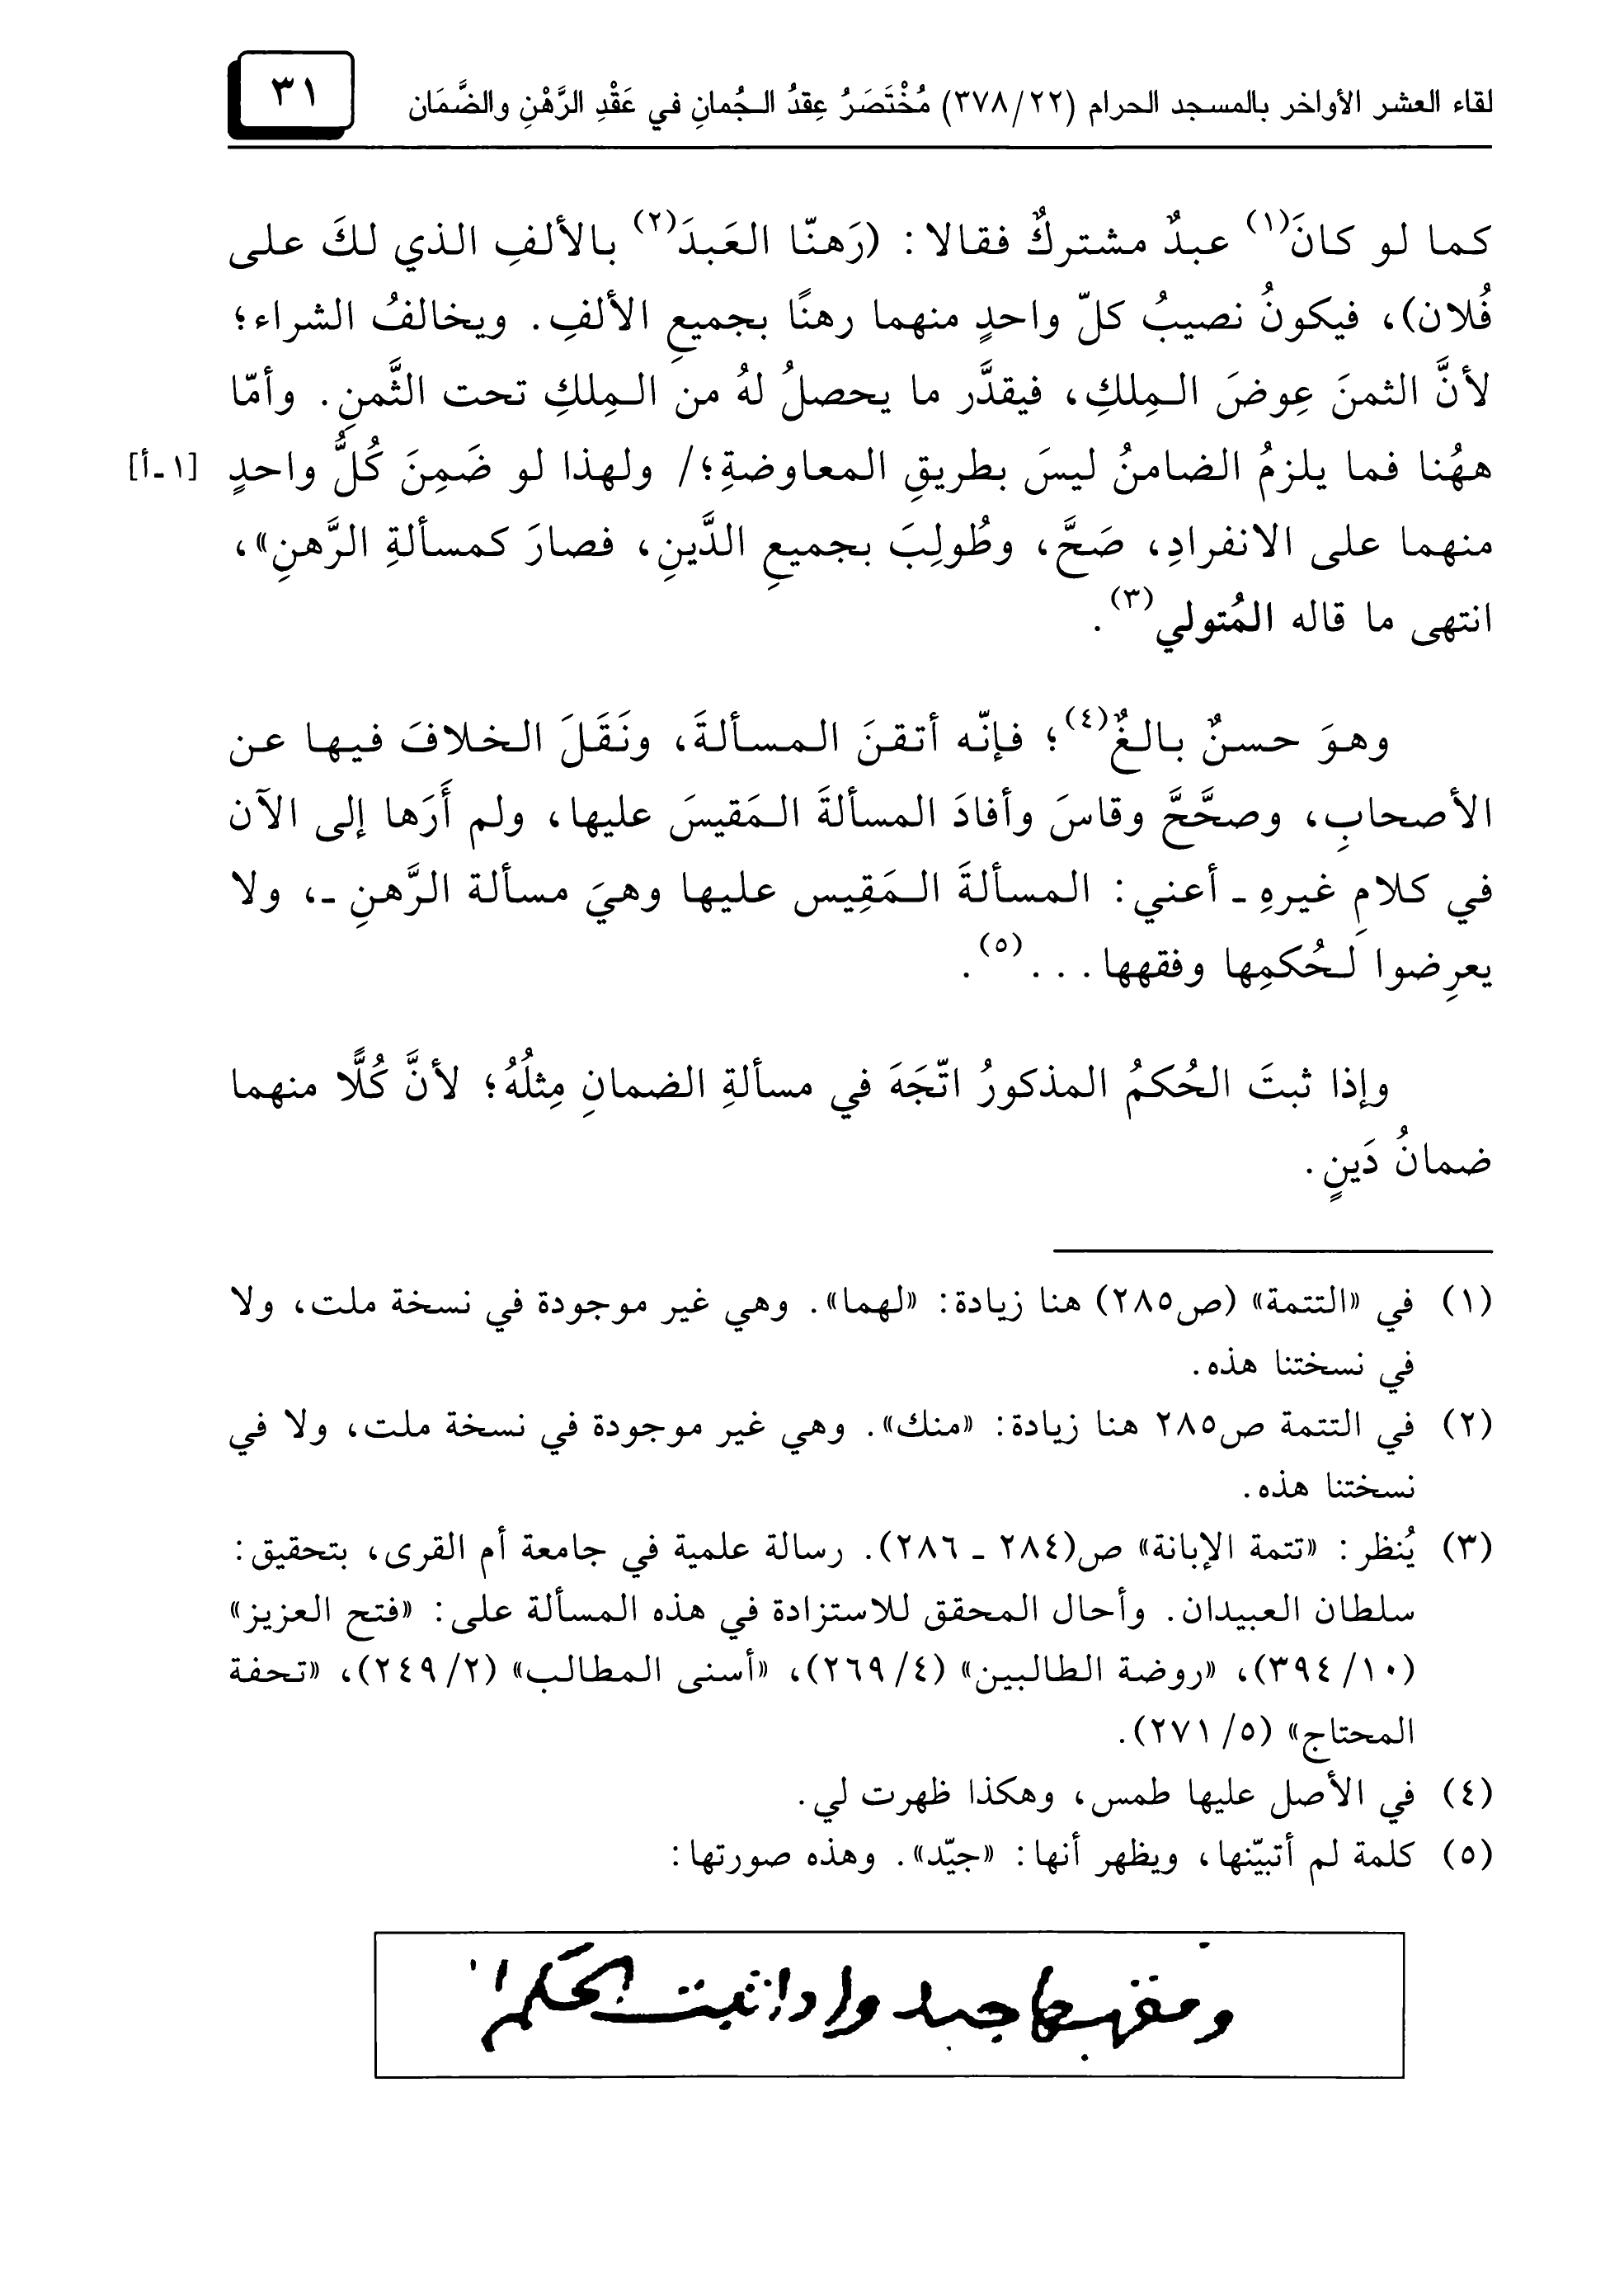 لقاء العشر الأواخر بالمسجد الحرام (٣٧٨/٢٢) مُخْتَصَرُ عِقدُ الـجُمانِ في عَقْدِ الرَّهْنِ والضَّمَان
٣١
كما لو كانَ(١) عبدٌ مشتركٌ فقالا: (رَهنّا العَبدَ(٢) بالألفِ الذي لكَ على
فُلان)، فيكونُ نصيبُ كلّ واحدٍ منهما رهنًا بجميعِ الألفِ. ويخالفُ الشراء؛
لأنَّ الثمنَ عِوضَ الـمِلكِ، فيقدَّر ما يحصلُ لهُ من الـمِلكِ تحت الثَّمنِ. وأمّا
ههُنا فما يلزمُ الضامنُ ليسَ بطريقِ المعاوضةِ؛/ ولهذا لو ضَمِنَ كُلُّ واحدٍ [١ـأ]
منهما على الانفرادِ، صَحَّ، وطُولِبَ بجميعِ الدَّينِ، فصارَ كمسألةِ الرَّهنِ»،
انتهى ما قاله المُتولي(٣).
وهوَ حسنٌ بالغٌ(٤)؛ فإنّه أتقنَ المسألةَ، ونَقَلَ الخلافَ فيها عن
الأصحابِ، وصحَّحَّ وقاسَ وأفادَ المسألةَ الـمَقيسَ عليها، ولم أَرَها إلى الآن
في كلامِ غيرهِ ـ أعني: المسألةَ الـمَقِيس عليها وهيَ مسألة الرَّهنِ ـ، ولا
يعرِضوا لـحُكمِها وفقهها...(٥).
وإذا ثبتَ الحُكمُ المذكورُ اتّجَهَ في مسألةِ الضمانِ مِثلُهُ؛ لأنَّ كُلًّا منهما
ضمانُ دَينٍ.
(١) في «التتمة» (ص٢٨٥) هنا زيادة: «لهما». وهي غير موجودة في نسخة ملت، ولا
في نسختنا هذه.
(٢) في التتمة ص٢٨٥ هنا زيادة: «منك». وهي غير موجودة في نسخة ملت، ولا في
نسختنا هذه.
(٣) يُنظر: «تتمة الإبانة» ص(٢٨٤ ـ ٢٨٦). رسالة علمية في جامعة أم القرى، بتحقيق:
سلطان العبيدان. وأحال المحقق للاستزادة في هذه المسألة على: «فتح العزيز»
(٣٩٤/١٠)، «روضة الطالبين» (٢٦٩/٤)، «أسنى المطالب» (٢٤٩/٢)، «تحفة
المحتاج» (٢٧١/٥).
(٤) في الأصل عليها طمس، وهكذا ظهرت لي.
(٥) كلمة لم أتبيّنها، ويظهر أنها: «جيّد». وهذه صورتها:
وفقهها جيد واذا ثبت الحكم